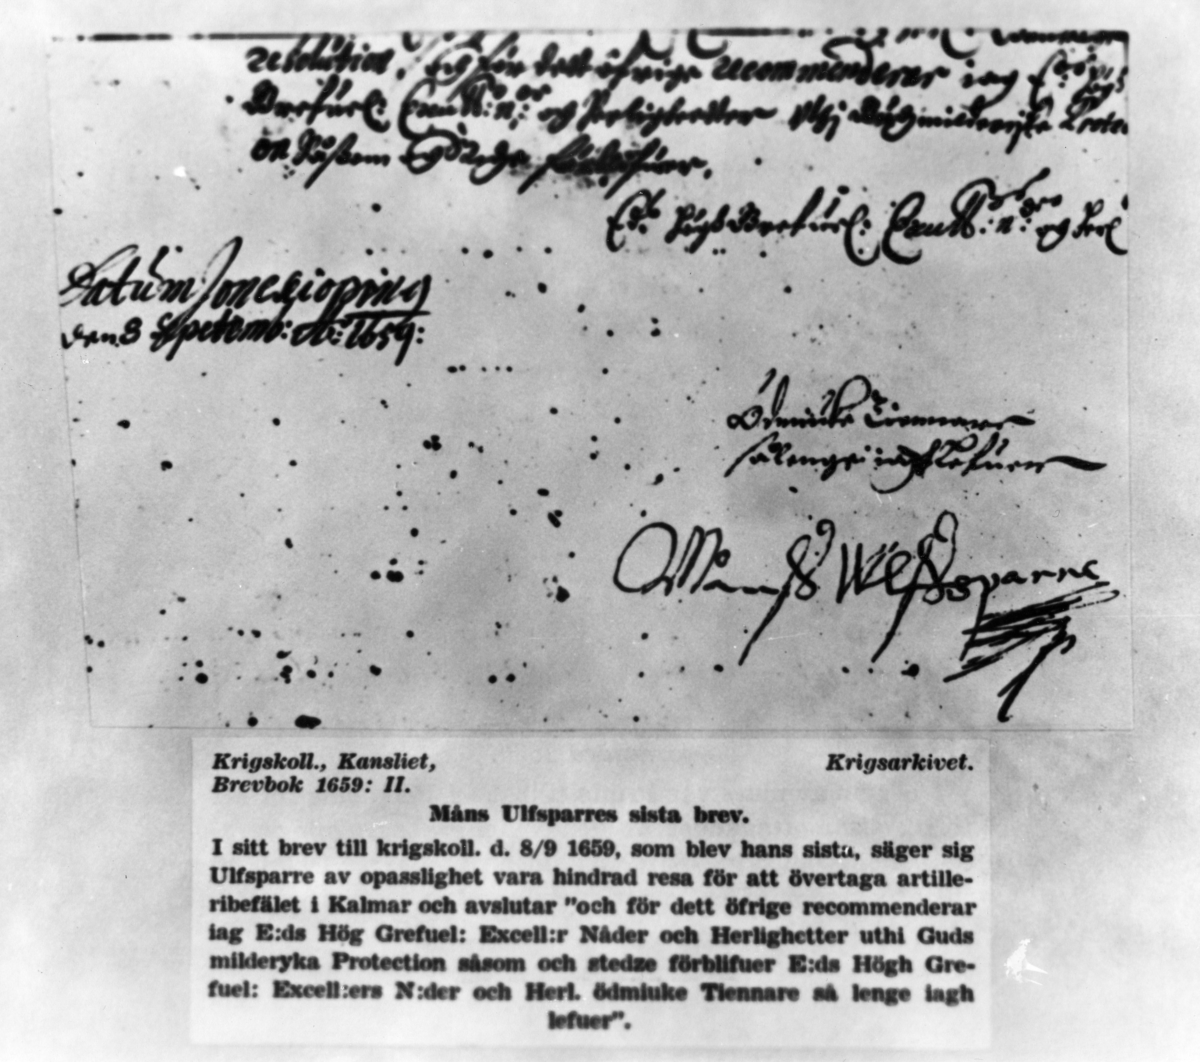 resolution, och för dett öfrige recommenderar iag E:ds Hög
Grefuel: Excell:r N: och Herligheetter uthi Gudz milderyke Protec
såsom och stedze förblifuer,
E:ds Högh Grefuel: Excell:ers N:der og Herl
Datum Jonekiöping
den 8 Sepetemb: Ao: 1659:
Ödmiuke Tiennare
så lenge iagh lefuer
Måns Wlfsparre
Krigskoll., Kansliet,
Krigsarkivet.
Brevbok 1659: II.
Måns Ulfsparres sista brev.
I sitt brev till krigskoll. d. 8/9 1659, som blev hans sista, säger sig
Ulfsparre av opasslighet vara hindrad resa för att övertaga artille-
ribefälet i Kalmar och avslutar "och för dett öfrige recommenderar
iag E:ds Hög Grefuel: Excell:r Nåder och Herlighetter uthi Guds
milderyka Protection såsom och stedze förblifuer E:ds Högh Gre-
fuel: Excell:ers N:der och Herl. ödmiuke Tiennare så lenge iagh
lefuer".